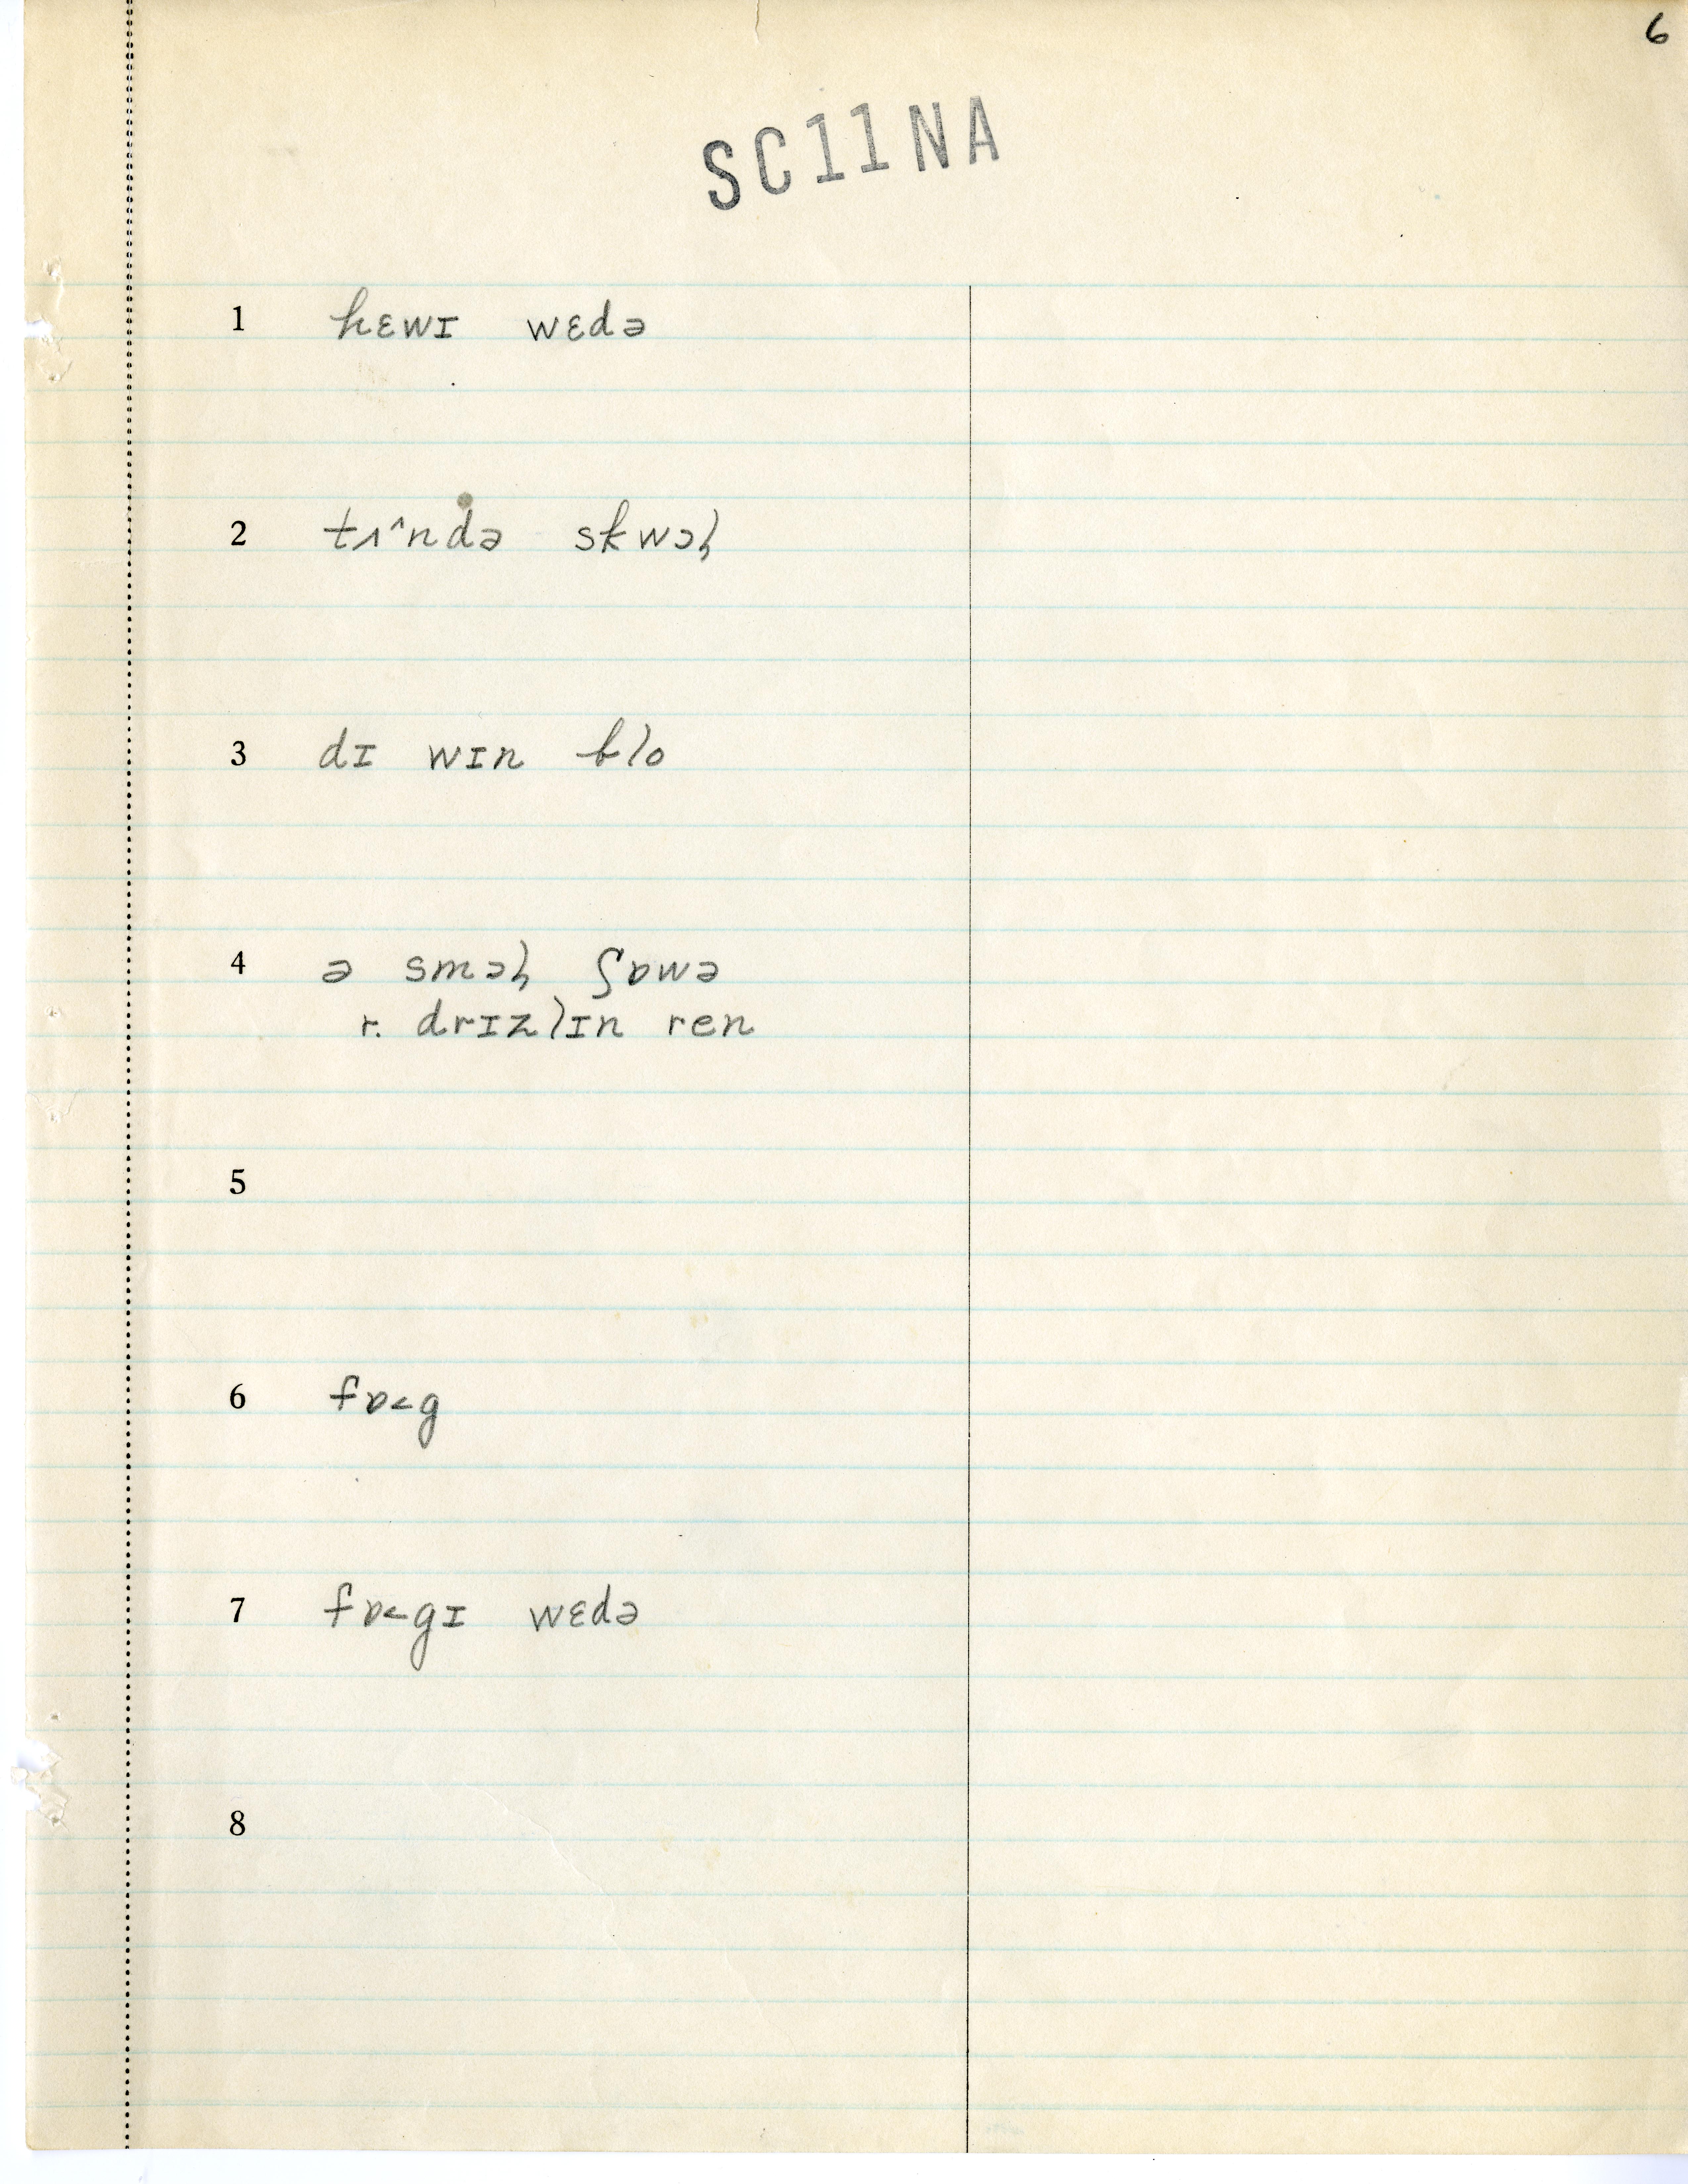 6
SC11NA
1 hɛwɪ wɛdə
2 tʌ^ndə skwɔɫ
3 dɪ wɪn blo
4 ə smɔɫ ʃɒwə
r. drɪzlɪn ren
5
6 fɒ<g
7 fɒ<gɪ wɛdə
8